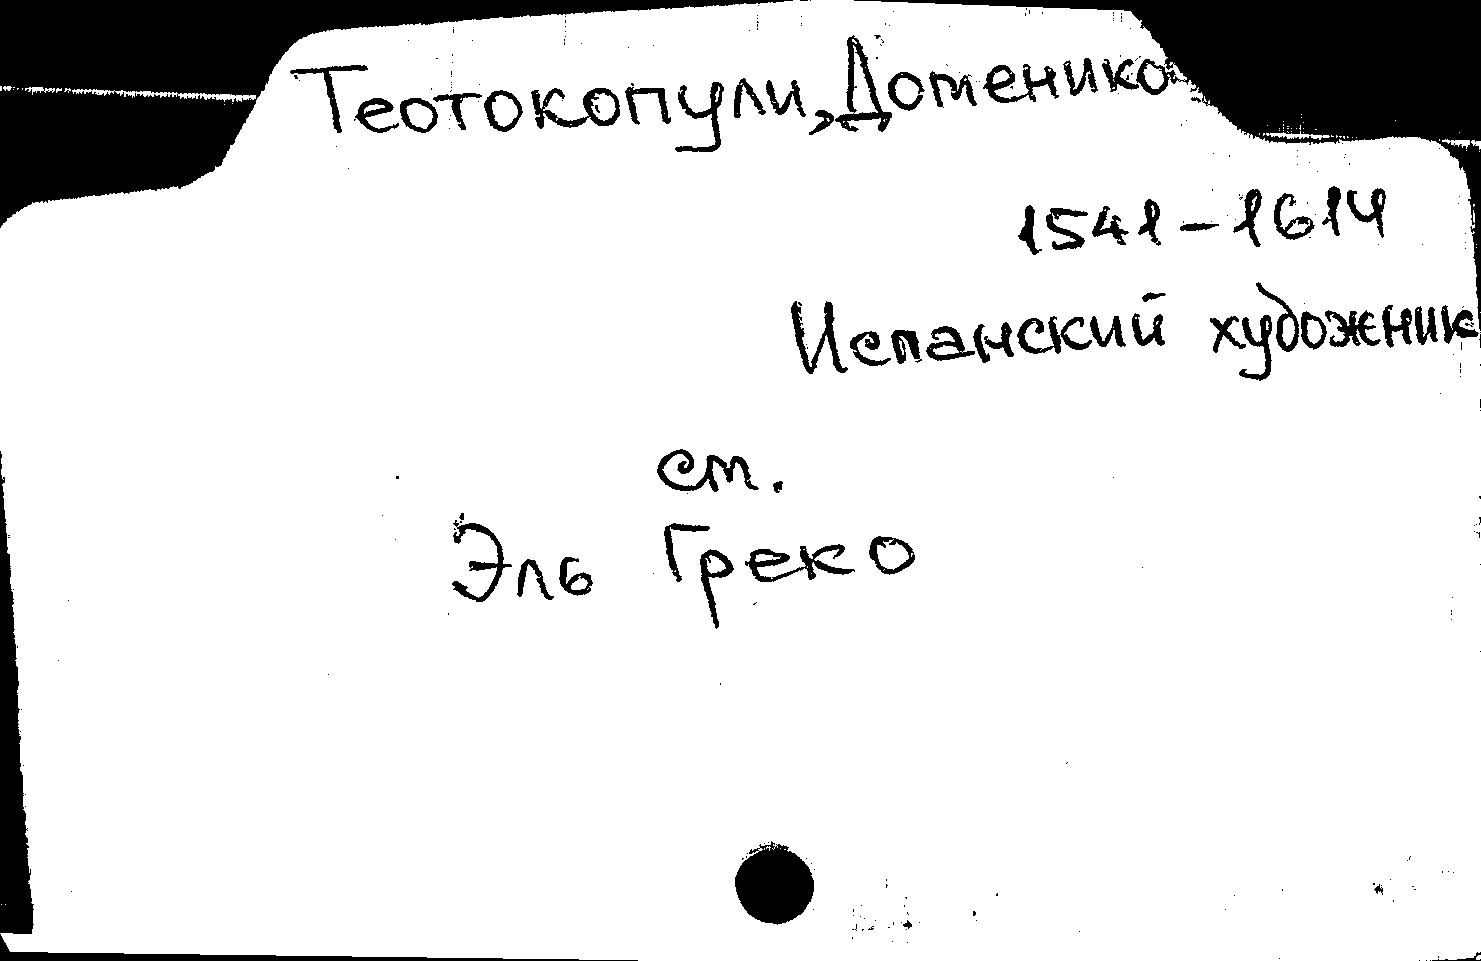 Теотокопули, Доменико
1541-1614
Испанский художник
см.
Эль Греко